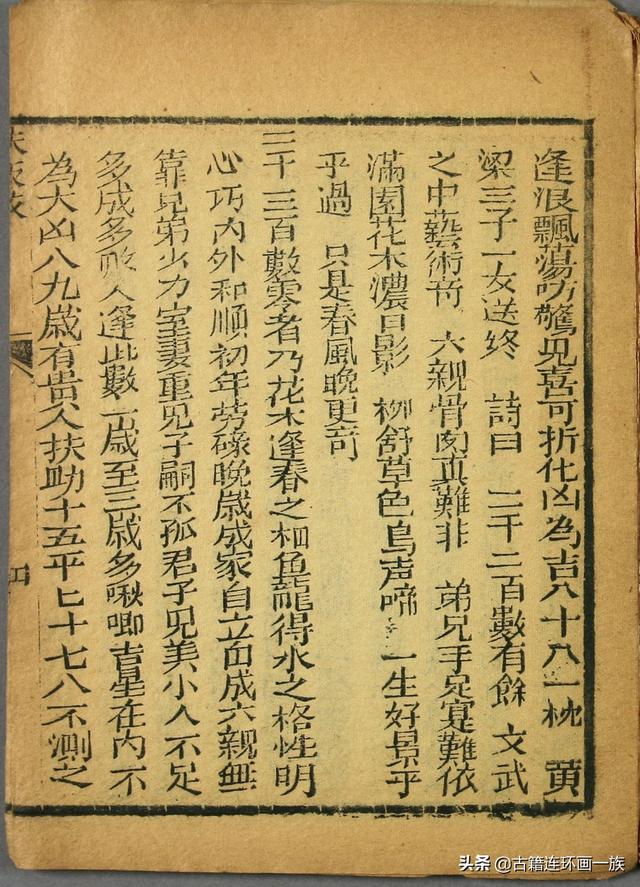 逢浪飄蕩叻驚見喜可折化凶為吉八十八一枕 黄
梁三子一女送終 詩曰 二千二百數有餘 文武
之中藝術竒 六親骨肉真難非 弟兄手足寔難依
滿園花木濃日影 柳舒草色鳥声啼 一生好景乎
乎過 只是春風晚更竒
二千三百數零者乃花木逢春之相魚龍得水之格性明
心巧内外和順初年劳碌晚歳成家自立而成六親無
靠兄弟少力室妻重見子嗣不孤君子見美小人不足
多成多敗人逢此數一歳至三歳多啾唧吉星在内不
為大凶八九歳有貴人扶助十五平七十七八不測之
头条 @古籍连环画一族